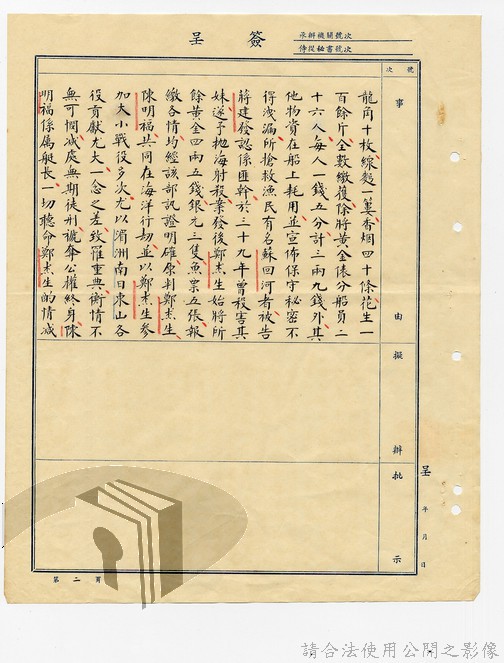 簽呈
承辦機關號次
侍從秘書號次
號次
事由
擬辦
批示
龍角十枚線麪一簍香烟四十條花生一
百餘斤全數繳獲除將黃金俵分船員二
十六人每人一錢五分計三兩九錢外其
他物資在船上耗用並宣佈保守秘密不
得洩漏所搶救漁民有名蘇回河者被告
蔣建發認係匪幹於三十九年曾殺害其
妹遂予拋海射殺案發後鄭杰生始將所
餘黃金四兩五錢銀元三隻魚票五張報
繳各情均經該部訊證明確原判鄭杰生
陳明福共同在海洋行刼並以鄭杰生參
加大小戰役多次尤以湄洲南日東山各
役貢獻尤大一念之差致罹重典衡情不
無可憫減處無期徒刑褫奪公權終身陳
明福係屬艇長一切聽命鄭杰生的情減
呈 年 月 日
第二頁
請合法使用公開之影像